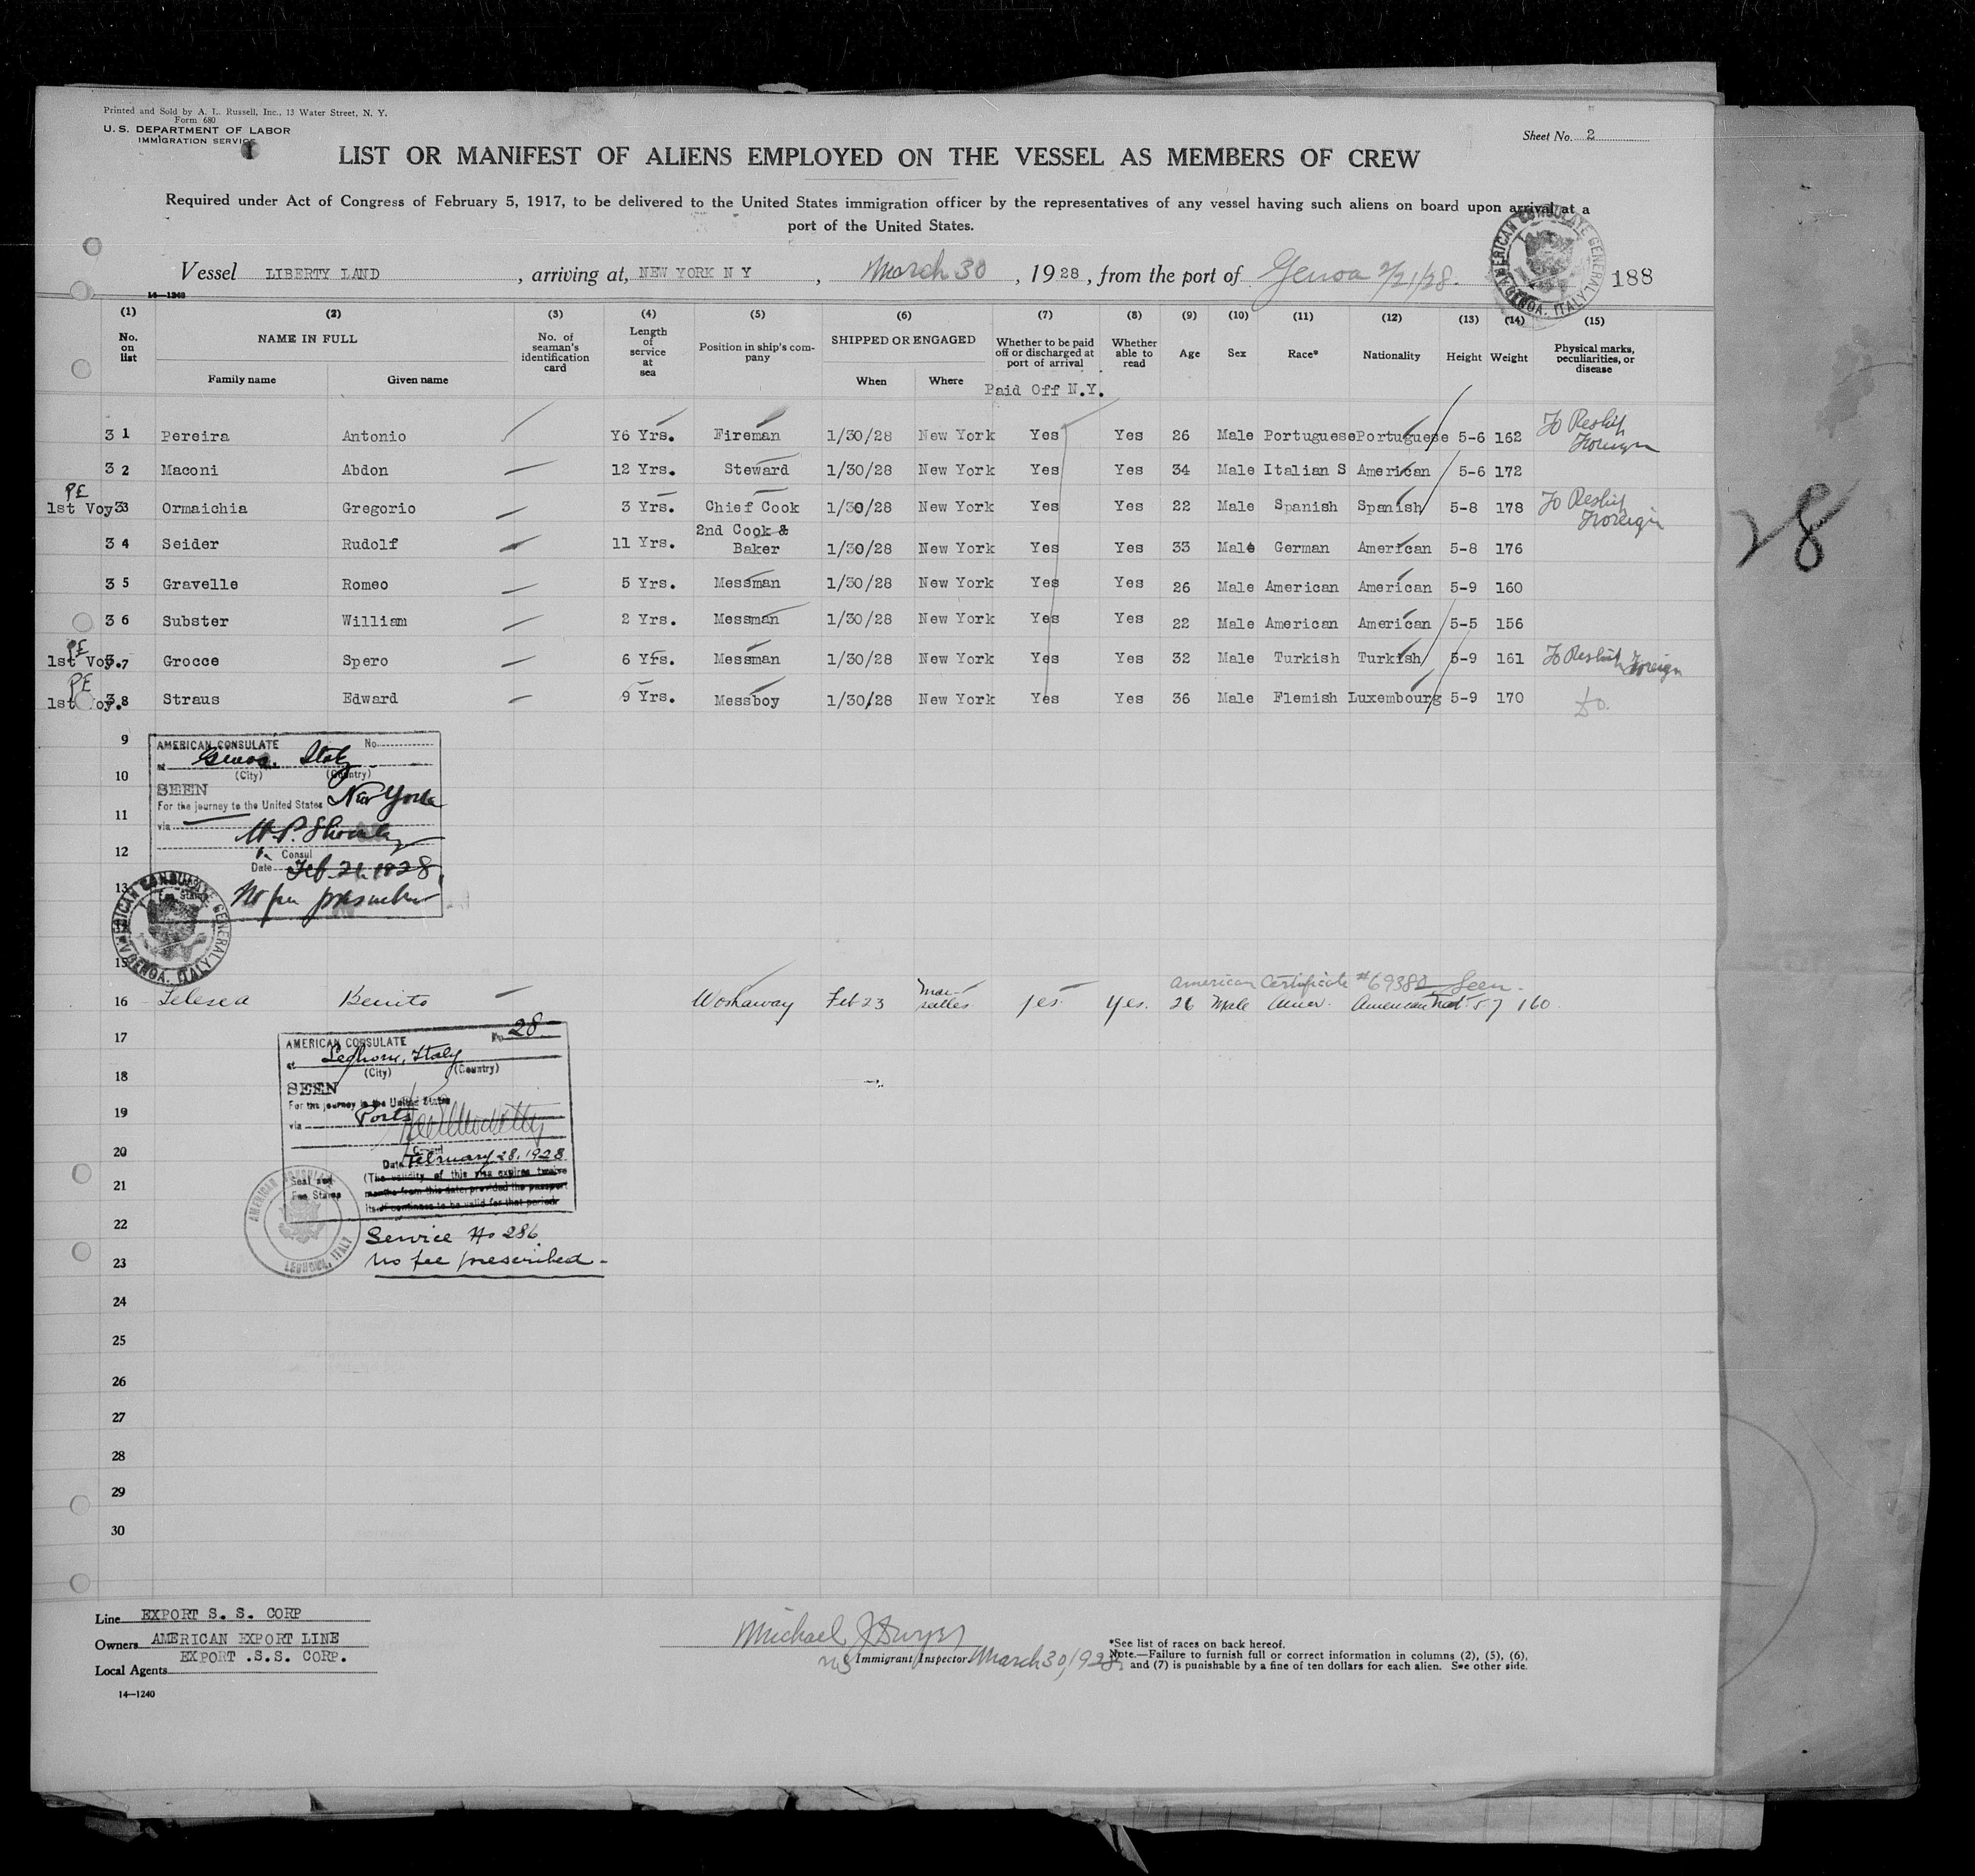 Printed and Sold by A. L. Russell, Inc., 13 Water Street, N. Y.
Form 680
U. S. DEPARTMENT OF LABOR
IMMIGRATION SERVICE
Sheet No. 2
LIST OR MANIFEST OF ALIENS EMPLOYED ON THE VESSEL AS MEMBERS OF CREW
Required under Act of Congress of February 5, 1917, to be delivered to the United States immigration officer by the representatives of any vessel having such aliens on board upon arrival at a
port of the United States.
AMERICAN CONSULATE GENERAL GENOA, ITALY
Vessel LIBERTY LAND , arriving at, NEW YORK N Y , March 30 , 1928 , from the port of Genoa 2/21/28. 188
14—1240
(1) (2) (3) (4) (5) (6) (7) (8) (9) (10) (11) (12) (13) (14) (15)
No. on list NAME IN FULL Family name Given name No. of seaman's identification card Length of service at sea Position in ship's company SHIPPED OR ENGAGED When Where Whether to be paid off or discharged at port of arrival Whether able to read Age Sex Race* Nationality Height Weight Physical marks, peculiarities, or disease
Paid Off N.Y.
3 1 Pereira Antonio Y6 Yrs. Fireman 1/30/28 New York Yes Yes 26 Male Portuguese Portuguese 5-6 162 To Reship Foreign
3 2 Maconi Abdon 12 Yrs. Steward 1/30/28 New York Yes Yes 34 Male Italian S American 5-6 172
PE
1st Voy 33 Ormaichia Gregorio 3 Yrs. Chief Cook 1/30/28 New York Yes Yes 22 Male Spanish Spanish 5-8 178 To Reship Foreign
3 4 Seider Rudolf 11 Yrs. 2nd Cook & Baker 1/30/28 New York Yes Yes 33 Male German American 5-8 176
3 5 Gravelle Romeo 5 Yrs. Messman 1/30/28 New York Yes Yes 26 Male American American 5-9 160
3 6 Subster William 2 Yrs. Messman 1/30/28 New York Yes Yes 22 Male American American 5-5 156
PE
1st Voy. 37 Grocce Spero 6 Yrs. Messman 1/30/28 New York Yes Yes 32 Male Turkish Turkish 5-9 161 To Reship Foreign
PE
1st Voy. 38 Straus Edward 9 Yrs. Messboy 1/30/28 New York Yes Yes 36 Male Flemish Luxembourg 5-9 170 Do.
28
9
10
11
12
13
15
AMERICAN CONSULATE No.
at Genoa, Italy
(City) (Country)
SEEN
For the journey to the United States New York
via
Consul
Date Feb. 21, 1928
No fee prescribed
AMERICAN CONSULATE GENERAL GENOA, ITALY
American Certificate #69380 Seen.
16 Benito Feb 23 Marseilles yes yes. 26 Male Amer. American 5 7 160
17
18
19
20
21
22
23
24
25
26
27
28
29
30
AMERICAN CONSULATE No. 28
at Leghorn, Italy
(City) (Country)
SEEN
For the journey to the United States
via Ports
Consul
Date February 28, 1928
(The validity of this visa expires twelve
months from this date, provided the passport
itself continues to be valid for that period.
Seal and
Fee Stamps
AMERICAN CONSULATE LEGHORN, ITALY
Service No 286
no fee prescribed -
Line EXPORT S. S. CORP
Owners AMERICAN EXPORT LINE
Local Agents EXPORT .S.S. CORP.
14—1240
Michael J Dwyer
Immigrant Inspector. March 30, 1928
*See list of races on back hereof.
Note.—Failure to furnish full or correct information in columns (2), (5), (6),
and (7) is punishable by a fine of ten dollars for each alien. See other side.